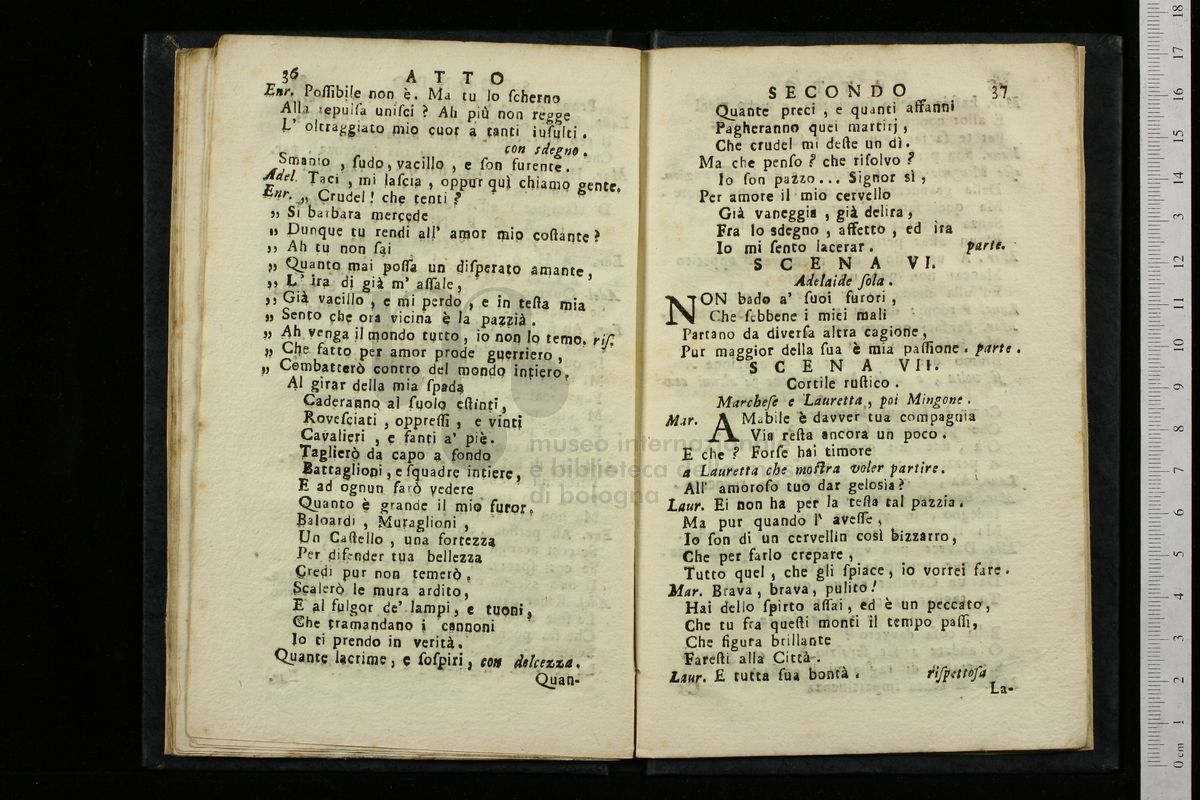 36 ATTO
Enr. Poſſibile non è. Ma tu lo ſcherno
Alla repulſa uniſci ? Ah più non regge
L' oltraggiato mio cuor a tanti iuſulti.
con sdegno.
Smanio, ſudo, vacillo, e ſon furente.
Adel. Taci, mi laſcia, oppur quì chiamo gente.
Enr. „ Crudel! che tenti ?
„ Si barbara mercede
„ Dunque tu rendi all' amor mio coſtante?
„ Ah tu non ſai
„ Quanto mai poſſa un diſperato amante,
„ L' ira di già m' aſſale,
„ Già vacillo, e mi perdo, e in teſta mia
„ Sento che ora vicina è la pazzià.
„ Ah venga il mondo tutto, io non lo temo. riſ.
„ Che fatto per amor prode guerriero,
„ Combatterò contro del mondo intiero.
Al girar della mia ſpada
Caderanno al ſuolo eſtinti,
Roveſciati, oppreſſi, e vinti
Cavalieri, e fanti a' piè.
Taglierò da capo a fondo
Battaglioni, e ſquadre intiere,
E ad ognun farò vedere
Quanto è grande il mio furor.
Baloardi, Muraglioni,
Un Caſtello, una fortezza
Per difender tua bellezza
Credi pur non temerò.
Scalerò le mura ardito,
E al fulgor de' lampi, e tuoni,
Che tramandano i cannoni
Io ti prendo in verità.
Quante lacrime, e ſoſpiri, con dolcezza.
Quan-
SECONDO 37
Quante preci, e quanti affanni
Pagheranno quei martirj,
Che crudel mi deſte un dì.
Ma che penſo ? che riſolvo ?
Io ſon pazzo... Signor sì,
Per amore il mio cervello
Già vaneggia, già delira,
Fra lo sdegno, affetto, ed ira
Io mi ſento lacerar. parte.
SCENA VI.
Adelaide ſola.
NON bado a' ſuoi furori,
Che ſebbene i miei mali
Partano da diverſa altra cagione,
Pur maggior della ſua è mia paſſione. parte.
SCENA VII.
Cortile ruſtico.
Marcheſe e Lauretta, poi Mingone.
Mar. AMabile è davver tua compagnia
Via reſta ancora un poco.
E che ? Forſe hai timore
a Lauretta che moſtra voler partire.
All' amoroſo tuo dar gelosìa?
Laur. Ei non ha per la teſta tal pazzia.
Ma pur quando l' aveſſe,
Io ſon di un cervellin così bizzarro,
Che per farlo crepare,
Tutto quel, che gli ſpiace, io vorrei fare.
Mar. Brava, brava, pulito!
Hai dello ſpirto aſſai, ed è un peccato,
Che tu fra queſti monti il tempo paſſi,
Che figura brillante
Fareſti alla Città.
Laur. E tutta ſua bontà. riſpettoſa
La-
museo internazionale
e biblioteca della
di bologna
0 cm 1 2 3 4 5 6 7 8 9 10 11 12 13 14 15 16 17 18